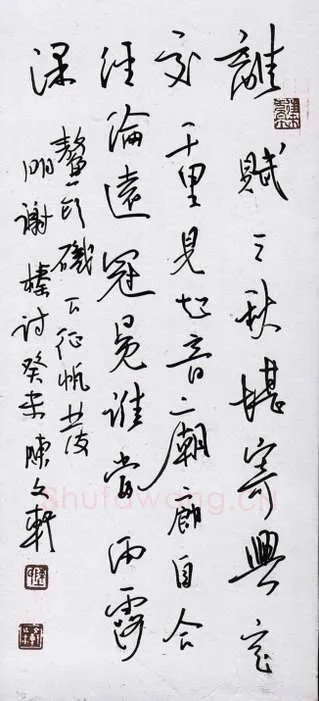 離賦三秋堪寄興定
交千里見知音廟廊自合
經綸遠冠冕誰當雨露
深
鰲頭磯下征帆發
明謝榛詩癸未陳文軒
Shufawang.cn